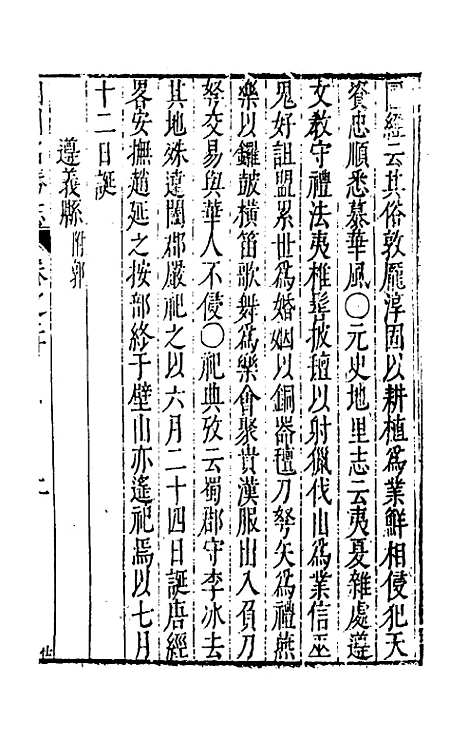 圖經云其俗敦龐淳固以耕植爲業鮮相侵犯天
資忠順悉慕華風○元史地里志云夷夏雜處遵
文教守禮法夷椎髻披氊以射獵伐山爲業信巫
鬼好詛盟累世爲婚姻以銅器氊刀弩矢爲禮燕
樂以鑼鼓橫笛歌舞爲樂會聚貴漢服出入負刀
弩交易與華人不侵○祀典攷云蜀郡守李冰去
其地殊遠闔郡嚴祀之以六月二十四日誕唐經
畧安撫趙延之按部終于壁山亦遙祀焉以七月
十二日誕
遵義縣附郭